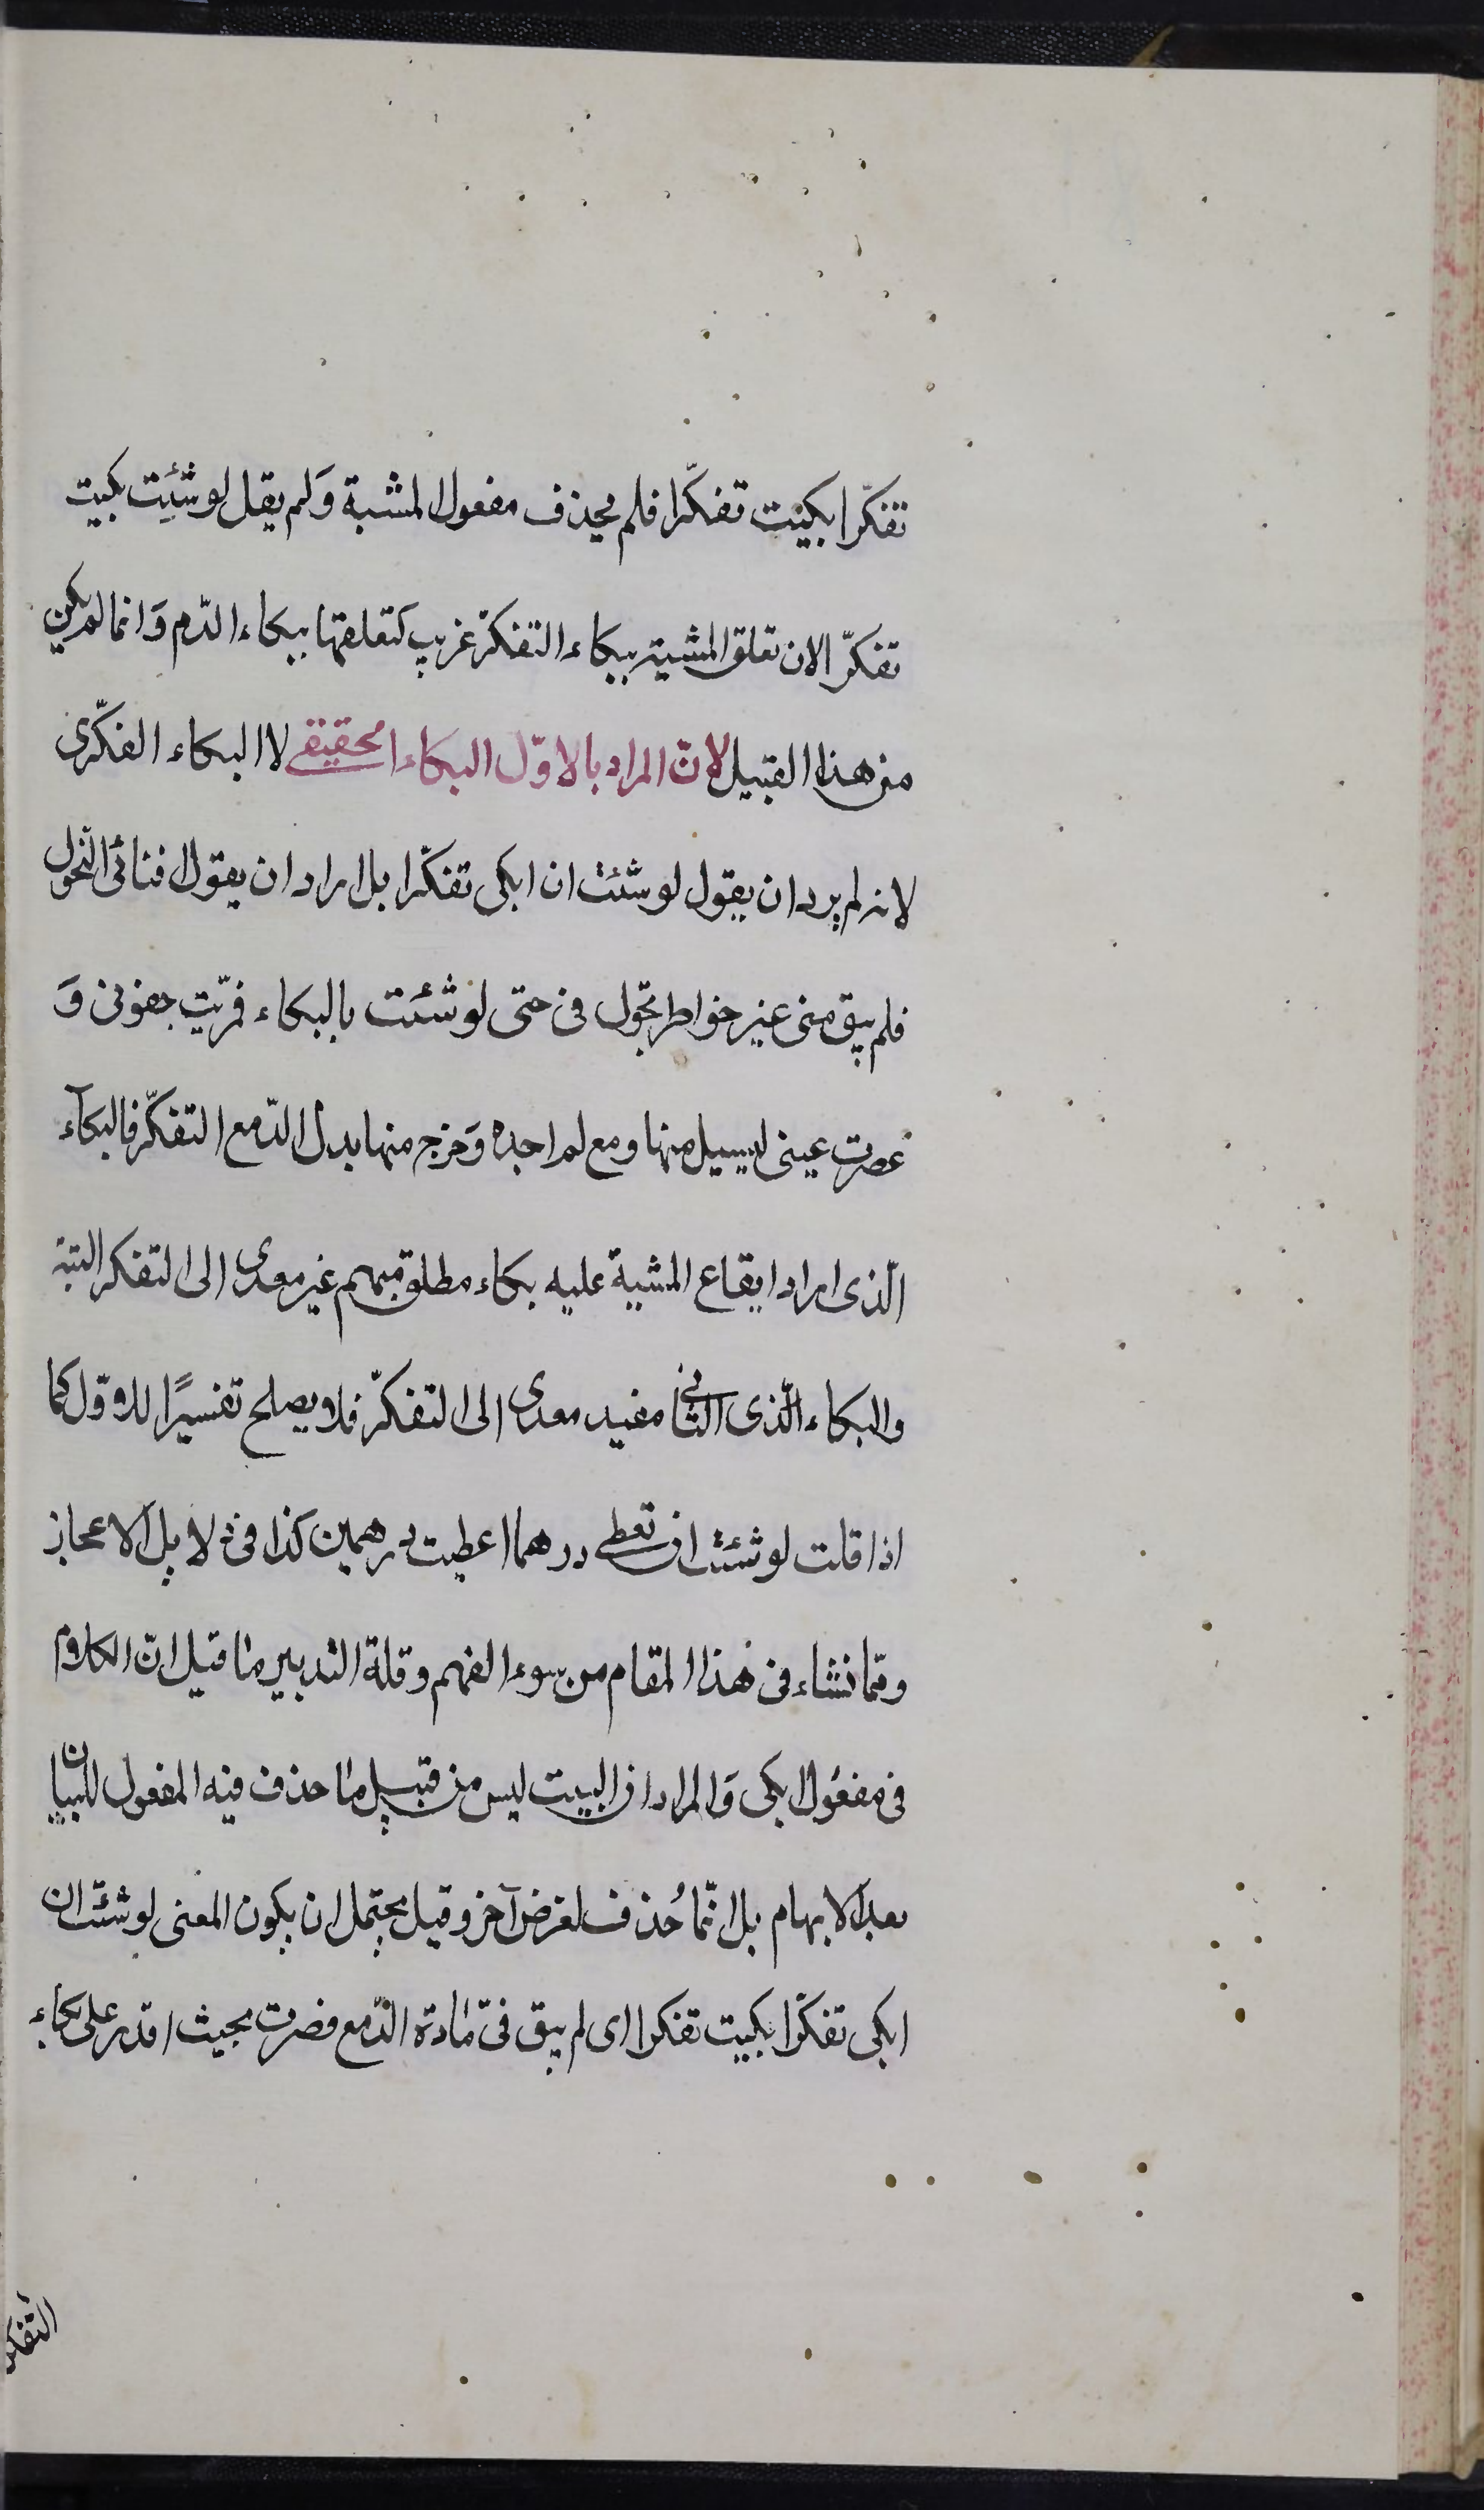 تفكّرا بكيت تفكّرا فلم يحذف مفعول المشية وَلم يقل لو شئت بكيت
تفكّرا لان تعلق المشية ببكاء التفكّر غريب كتعلقها ببكاء الدّم وَانما لم يكن
من هذا القبيل لانّ المراد بالاوّل البكاء الحقيقى لا البكاء الفكّرى
لانه لم يرد ان يقول لو شئت ان ابكى تفكّرا بل اراد ان يقول افنانى النحول
فلم يبق منى غير خواطر تجول فى حتى لو شئت بالبكاء فمريت جفونى وَ
عصرت عينى ليسيل منها ومع لم اجده وَخرج منها بدل الدّمع التفكّر فالبكآء
الّذى اراد ايقاع المشية عليه بكاء مطلق مبهم غير معدى الى التفكر البتة
والبكاء الّذى الثانى مفيد معدى الى التفكّر فلا يصلح تفسيرًا للاوّل كما
اذا قلت لو شئت ان تعطى درهما اعطيت درهمين كذا فى دلايل الاعجاز
وممّا نشاء فى هذا المقام من سوء الفهم وقلة التدبير ما قيل انّ الكلام
فى مفعول ابكى وَالمراد ان البيت ليس من قبيل ما حذف فيه المفعول للبيان
بعد الابهام بل انّما حُذف لغرض آخر وقيل يحتمل ان يكون المعنى لو شئت ان
ابكى تفكّرا بكيت تفكرا اى لم يبق فىّ مادة الدّمع فصرت بحيث اقدر على بكاء
التفكر